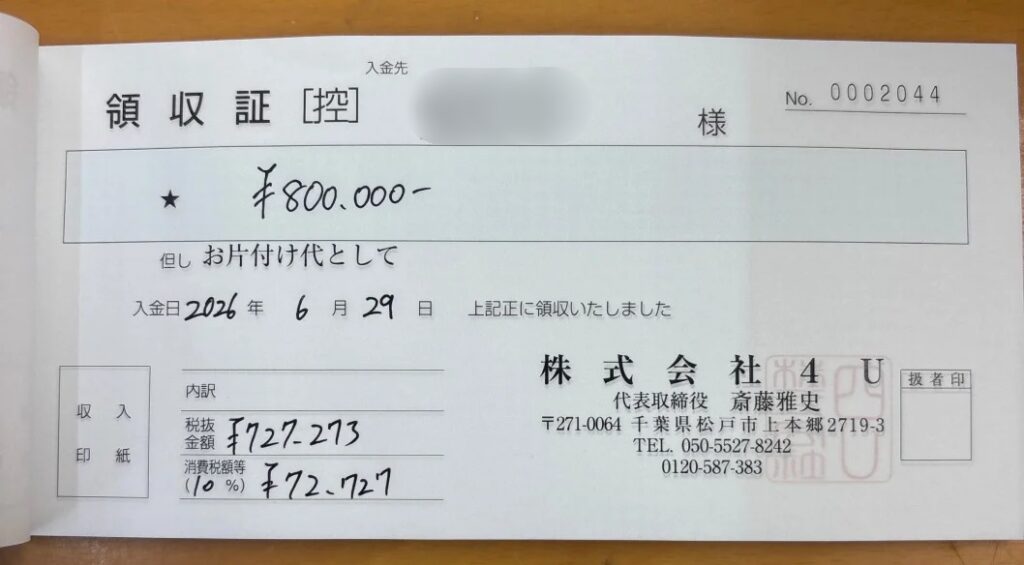 入金先
領収証[控]
様
No. 0002044
★ ¥800.000-
但し お片付け代として
入金日 2026年 6月 29日 上記正に領収いたしました
収入
印紙
内訳
税抜
金額 ¥727.273
消費税額等
(10%) ¥72.727
株式会社4U
代表取締役 斎藤雅史
〒271-0064 千葉県松戸市上本郷2719-3
TEL. 050-5527-8242
0120-587-383
扱者印